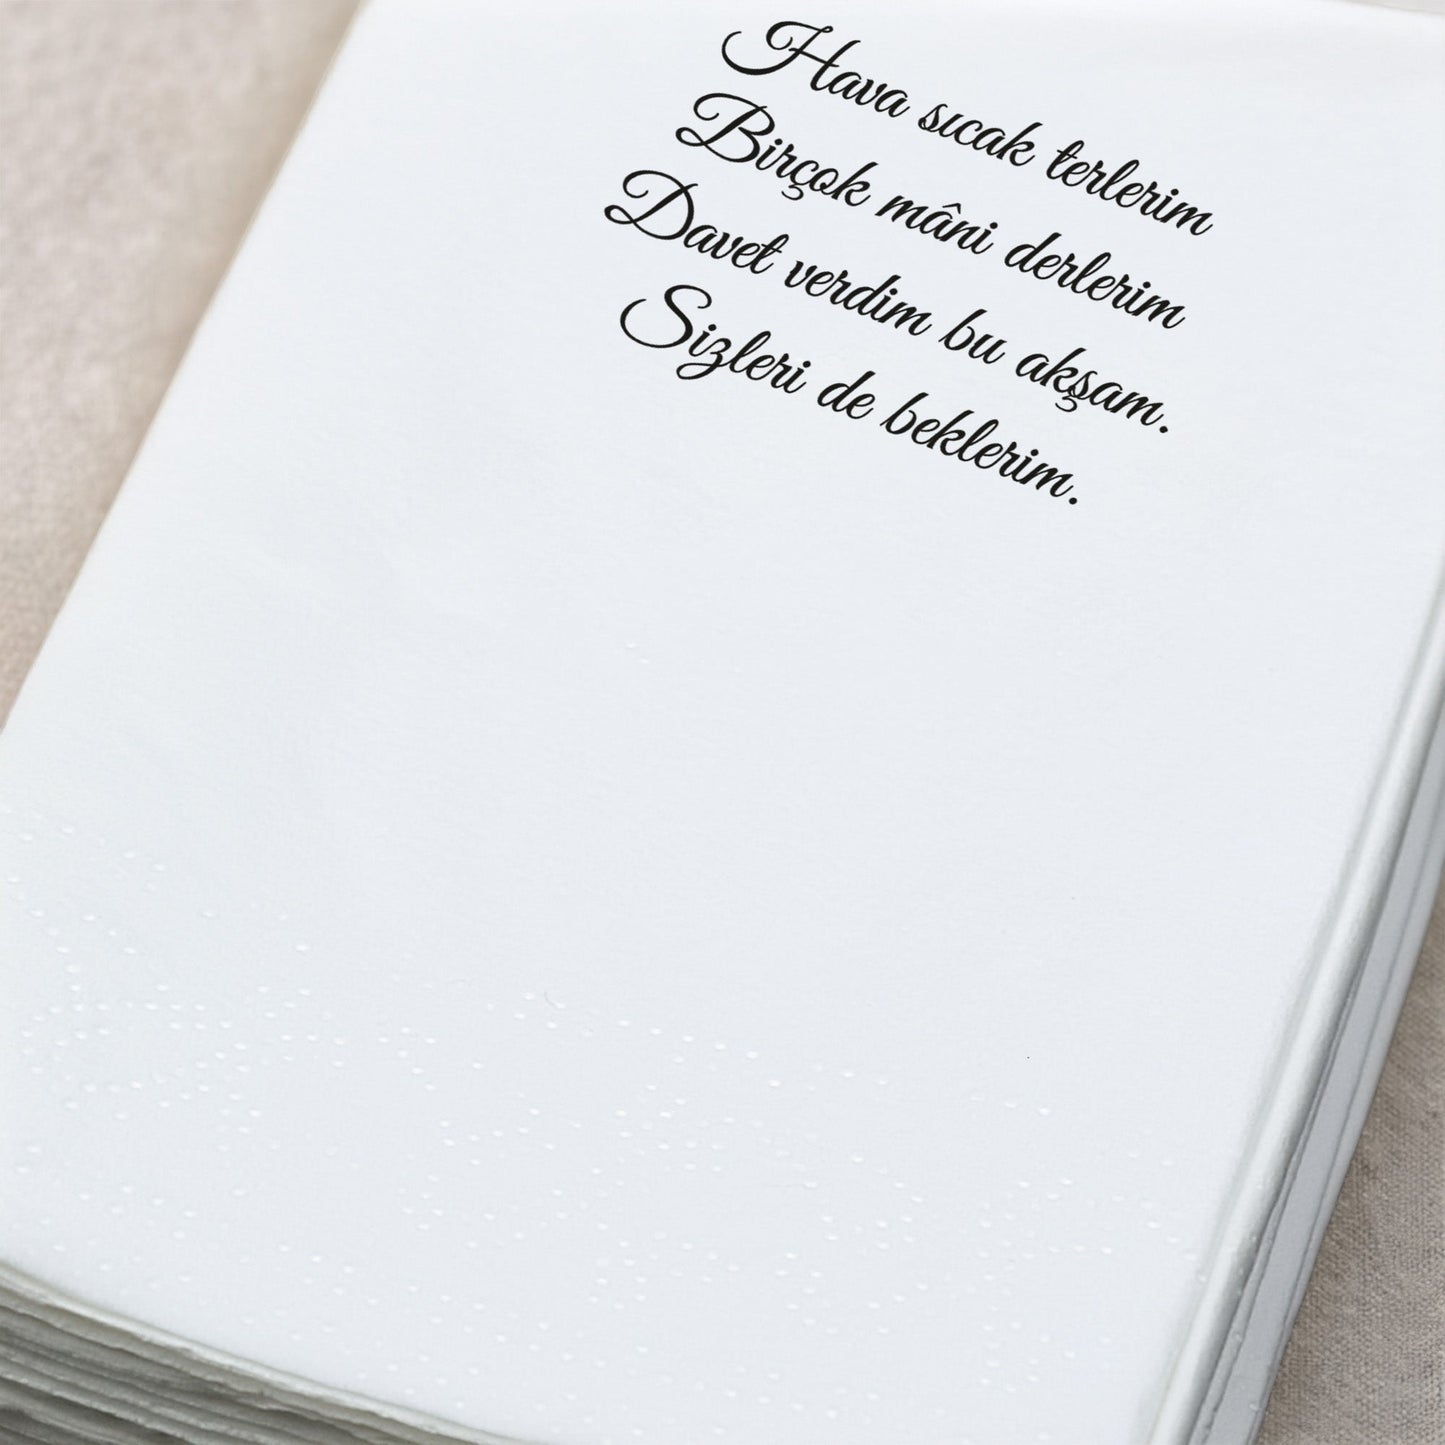 Hava sıcak terlerim
Birçok mâni derlerim
Davet verdim bu akşam.
Sizleri de beklerim.